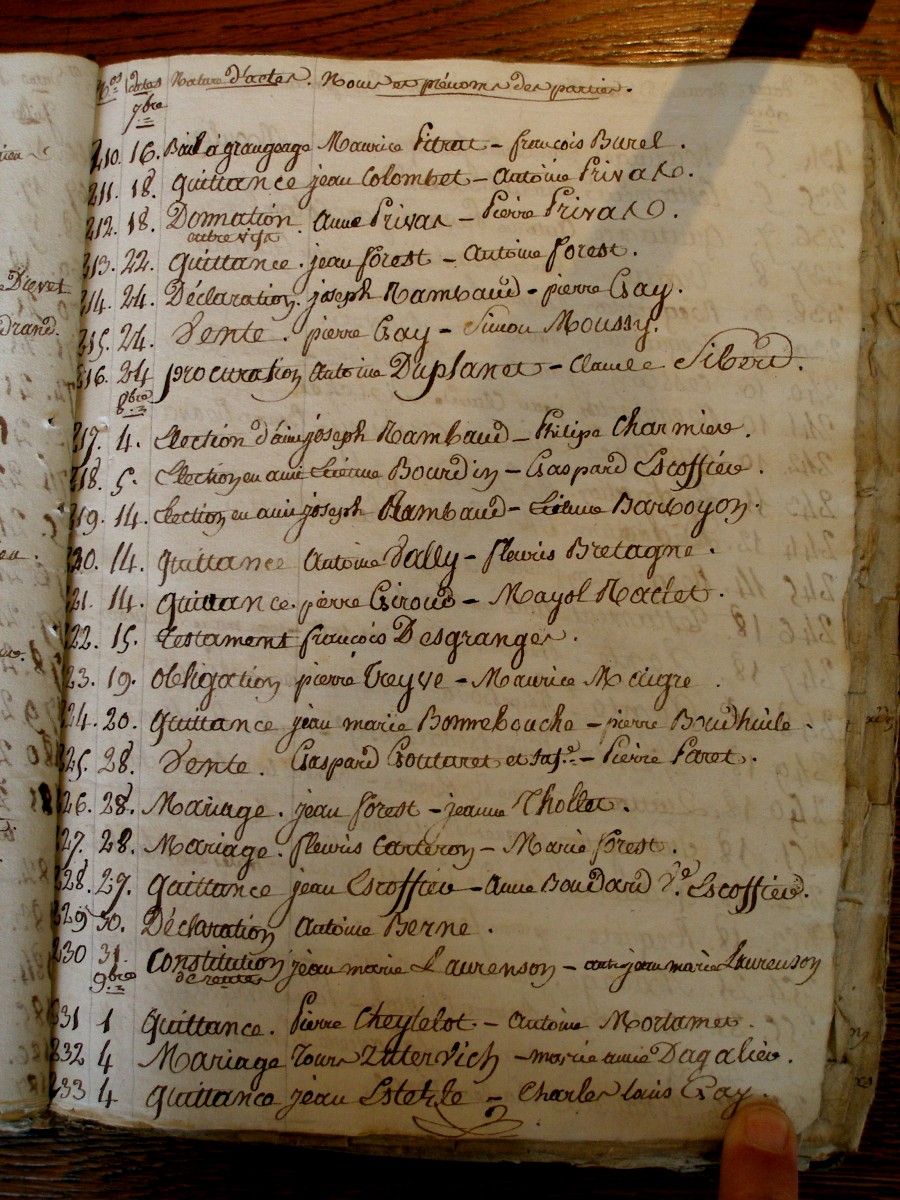 Nos dates Nature d'actes. Noms et prénoms des parties.
7bre
210. 16. Bail à grangeage Maurice Pitrat - françois Burel.
211. 18. Quittance jean Colombet - Antoine Privas.
212. 18. Donnation Anne Privas - Pierre Privas.
entre vifs
213. 22. Quittance. jean forest - Antoine forest.
214. 24. Déclaration. joseph Rambaud - pierre Gay.
215. 24. Vente. pierre Gay - Simon Moussy.
216. 24 procuration Antoine Duplanet - Claude Sibert.
8bre
217. 4. Election d'ami joseph Rambaud - Philipe Charmier.
218. 5. Election en ami Etienne Bourdin - Gaspard Escoffier.
219. 14. Election en ami joseph Rambaud - Etienne Barboyon.
220. 14. Quittance Antoine Vally - fleuris Bretagne.
221. 14. Quittance. pierre Giroud - Mayol Raclet.
222. 15. Testament françois Desgranges.
223. 19. Obligation pierre Treyve - Maurice Maigre.
224. 20. Quittance jean marie Bonnebouche - pierre Boudhuile.
225. 28. Vente. Gaspard Goutaret et sa fe. - Pierre Paret.
226. 28. Mariage. jean forest - jeanne Thollet.
227. 28. Mariage. fleuris Carteron - Marie forest.
228. 29. Quittance jean Escoffier - Anne Boudard Ve. Escoffier.
229 30. Déclaration Antoine Berne.
230 31. Constitution jean marie Laurenson - jean marie Laurenson
de rentes
9bre
231 1 Quittance. Pierre Cheytelot - Antoine Mortamet.
232 4 Mariage Zutervich - marie anne Dagalier.
233 4 Quittance jean Estetzle - Charles louis Gay.